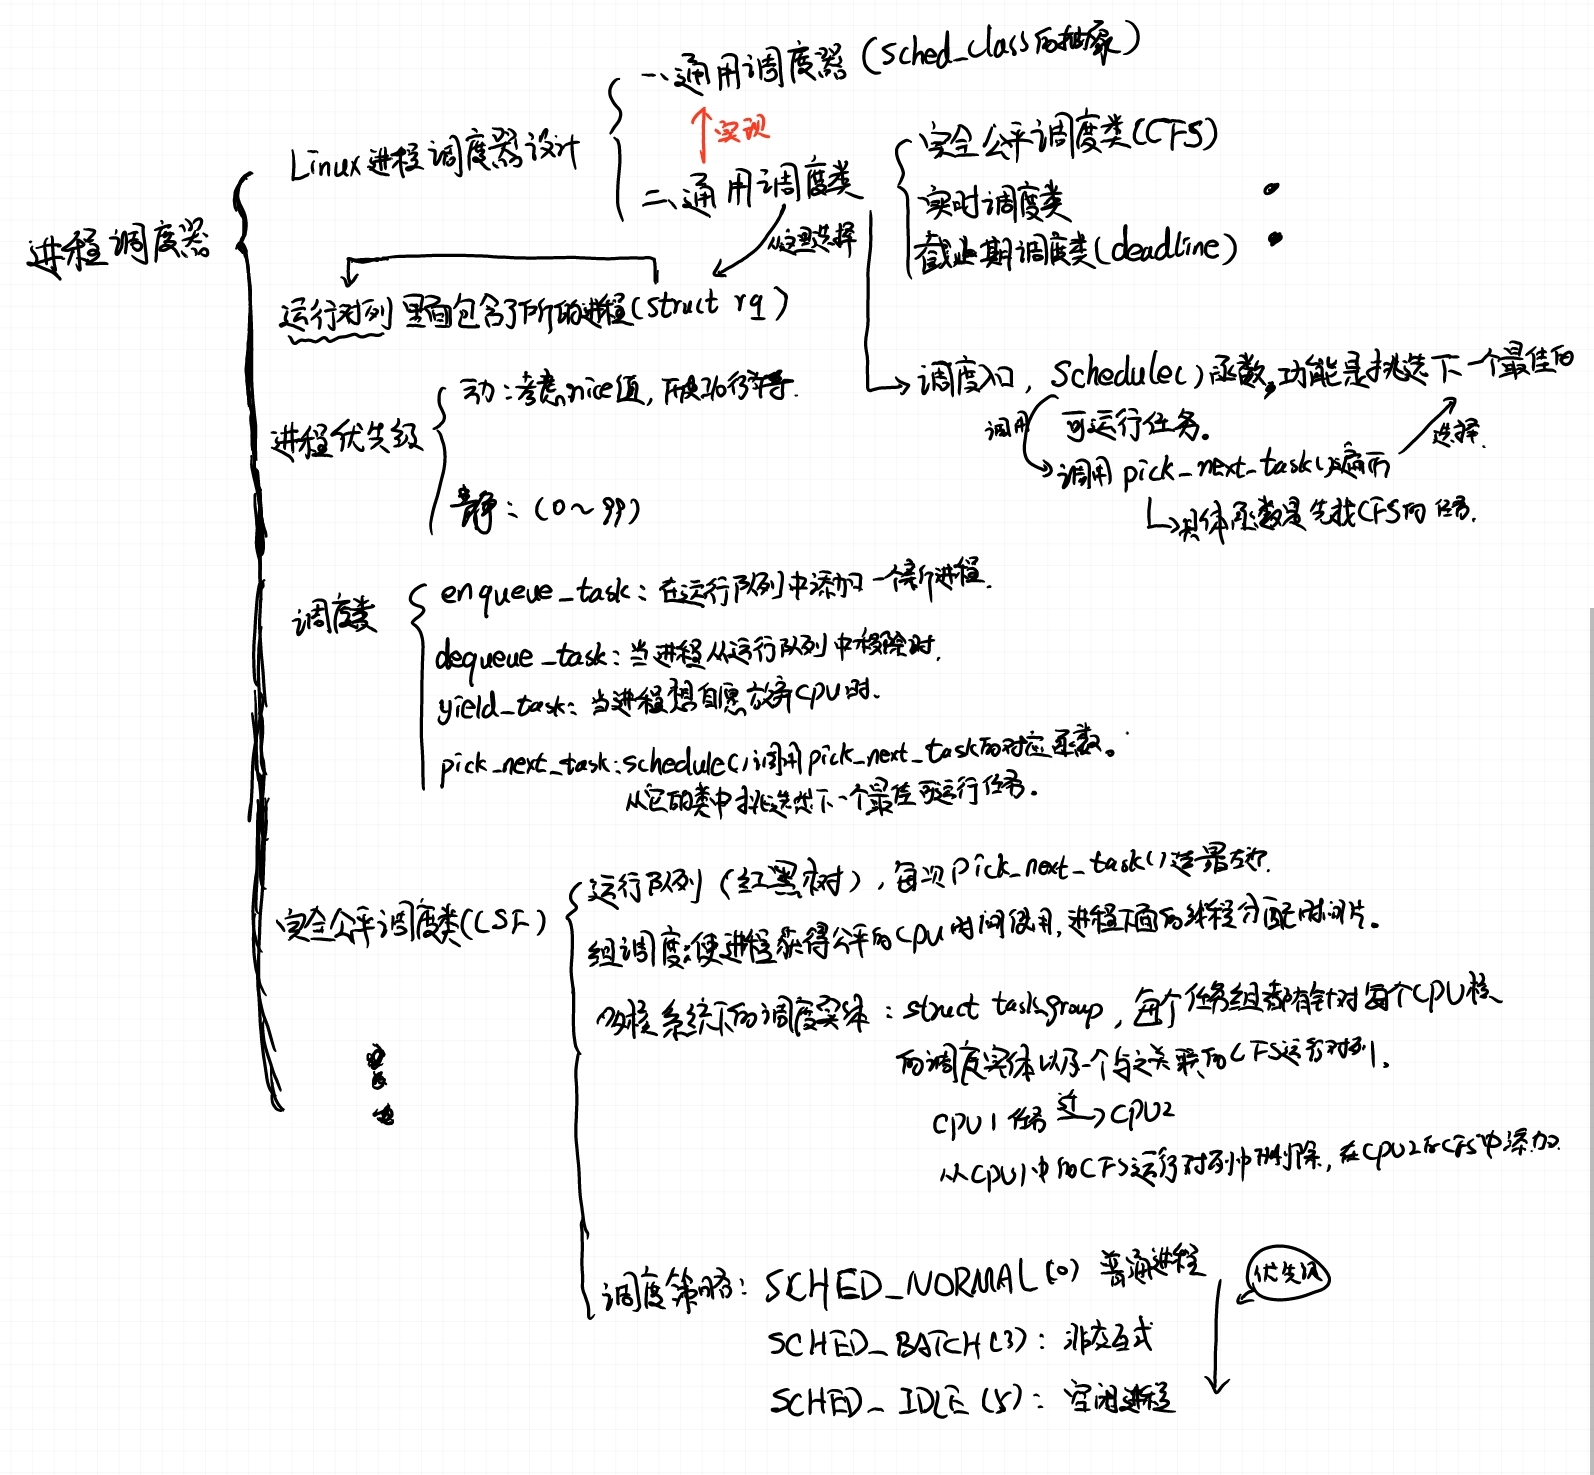 一、通用调度器（sched_class的抽象）
实现
二、通用调度类
Linux进程调度器设计
完全公平调度类(CFS)
实时调度类
截止期调度类(deadline)
进程调度器
从这里选择
运行对列 里面包含了所有的进程(struct rq)
调度入口，schedule()函数,功能是挑选下一个最佳的
可运行任务。
调用
选择.
调用pick_next_task()
具体函数是先找CFS的任务.
进程优先级
动：考虑nice值，
静：(0～99)
调度类
enqueue_task：在运行队列中添加一个新进程.
dequeue_task：当进程从运行队列中移除时.
yield_task：当进程想自愿放弃CPU时.
pick_next_task:schedule()调用pick_next_task的对应函数。
从它的类中挑选出下一个最佳可运行任务.
完全公平调度类(CSF)
运行队列（红黑树），每次pick_next_task()选最左边.
组调度:使进程获得公平的CPU时间使用,进程下面的线程分配时间片。
多核系统下的调度实体：struct task_group，每个任务组都有针对每个CPU核
的调度实体以及一个与之关联的CFS运行对列.
CPU1 任务 迁→CPU2
从CPU1中的CFS运行对列中删除,在CPU2的CFS中添加.
调度策略：SCHED_NORMAL(0) 普通进程
优先级
SCHED_BATCH(3)：非交互式
SCHED_IDLE(5)：空闲进程